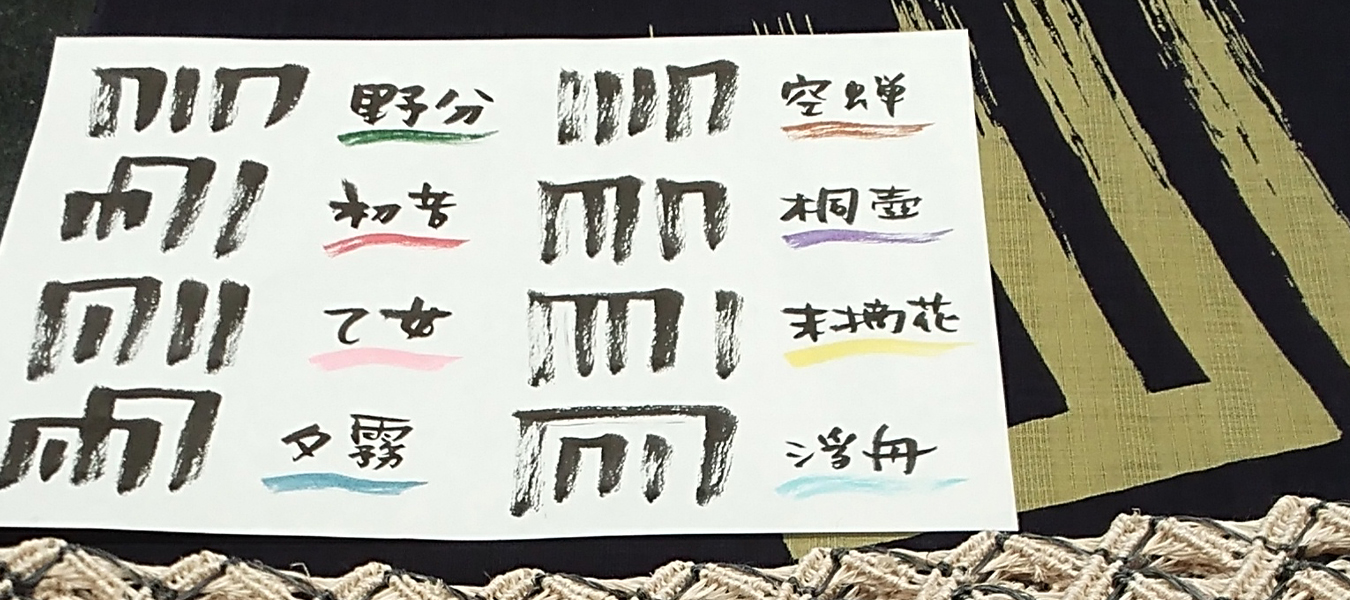 野分
初音
乙女
夕霧
空蝉
桐壷
末摘花
浮舟